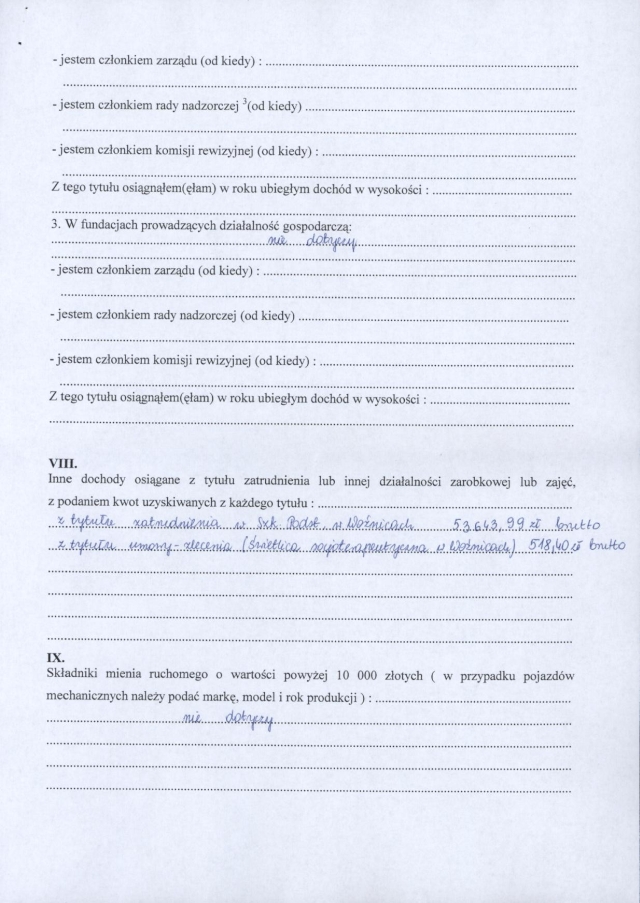 - jestem członkiem zarządu (od kiedy) : ......................................................
......................................................
- jestem członkiem rady nadzorczej ³(od kiedy) ......................................................
......................................................
- jestem członkiem komisji rewizyjnej (od kiedy) : ......................................................
......................................................
Z tego tytułu osiągnąłem(ęłam) w roku ubiegłym dochód w wysokości : ..............................
......................................................
3. W fundacjach prowadzących działalność gospodarczą:
nie dotyczy
......................................................
- jestem członkiem zarządu (od kiedy) : ......................................................
......................................................
- jestem członkiem rady nadzorczej (od kiedy) ......................................................
......................................................
- jestem członkiem komisji rewizyjnej (od kiedy) : ......................................................
......................................................
Z tego tytułu osiągnąłem(ęłam) w roku ubiegłym dochód w wysokości : ..............................
......................................................
VIII.
Inne dochody osiągane z tytułu zatrudnienia lub innej działalności zarobkowej lub zajęć,
z podaniem kwot uzyskiwanych z każdego tytułu : ......................................................
z tytułu zatrudnienia w Szk. Podst. w Woźnicach 53.643,99 zł brutto
z tytułu umowy-zlecenia (świetlica socjoterapeutyczna w Woźnicach) 518,40 zł brutto
......................................................
......................................................
......................................................
......................................................
IX.
Składniki mienia ruchomego o wartości powyżej 10 000 złotych ( w przypadku pojazdów
mechanicznych należy podać markę, model i rok produkcji ) : ..............................
nie dotyczy
......................................................
......................................................
......................................................